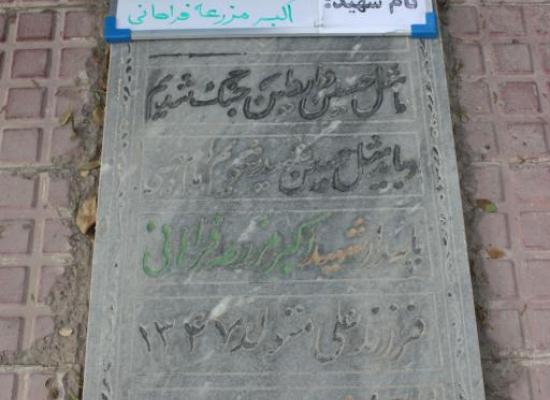 نام شهید:
اکبر مزرعه فراهانی
ما مثل حسین وارد این جنگ شدیم
و باید مثل حسین شهید شویم
پاسدار شهید اکبر مزرعه فراهانی
فرزند علی متولد ۱۳۴۷